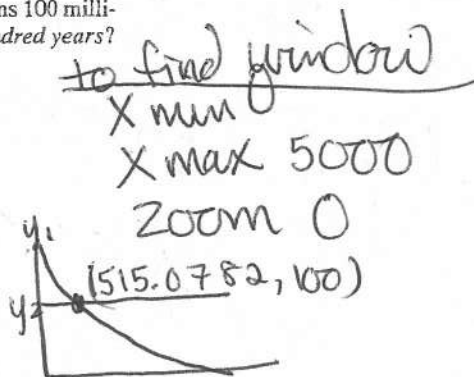 ns 100 milli-
ndred years?
to find window
X min
X max 5000
Zoom 0
y1
(515.0782, 100)
y2